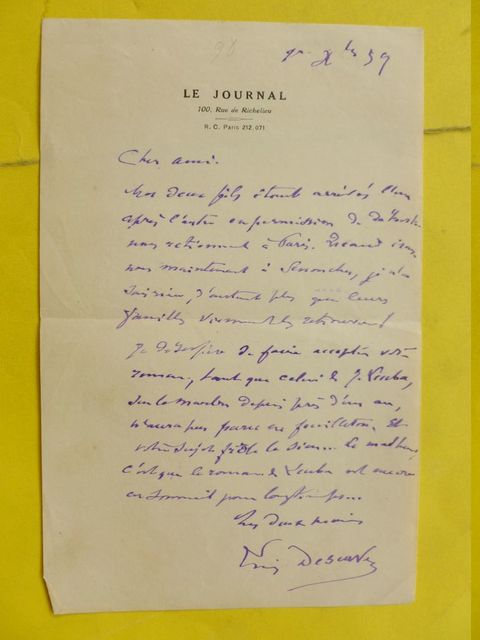 98
Xbre 39
LE JOURNAL
100, Rue de Richelieu
R. C. Paris 212.071
Cher ami.
Mes deux fils étant arrivés l'un
après l'autre en permission de
nous retiennent à Paris.
nous maintenant à Senonches, je n'en
d'autant plus que leurs
familles viennent les retrouver !
Je désespère de faire accepter votre
roman, tant que celui de J. Leuba,
sur le marbre depuis près d'un an,
n'aura pas paru en feuilleton. Et
votre sujet frôle le sien. Le malheur
c'est que le roman de Leuba est encore
en sommeil pour longtemps...
Les deux mains
Descaves